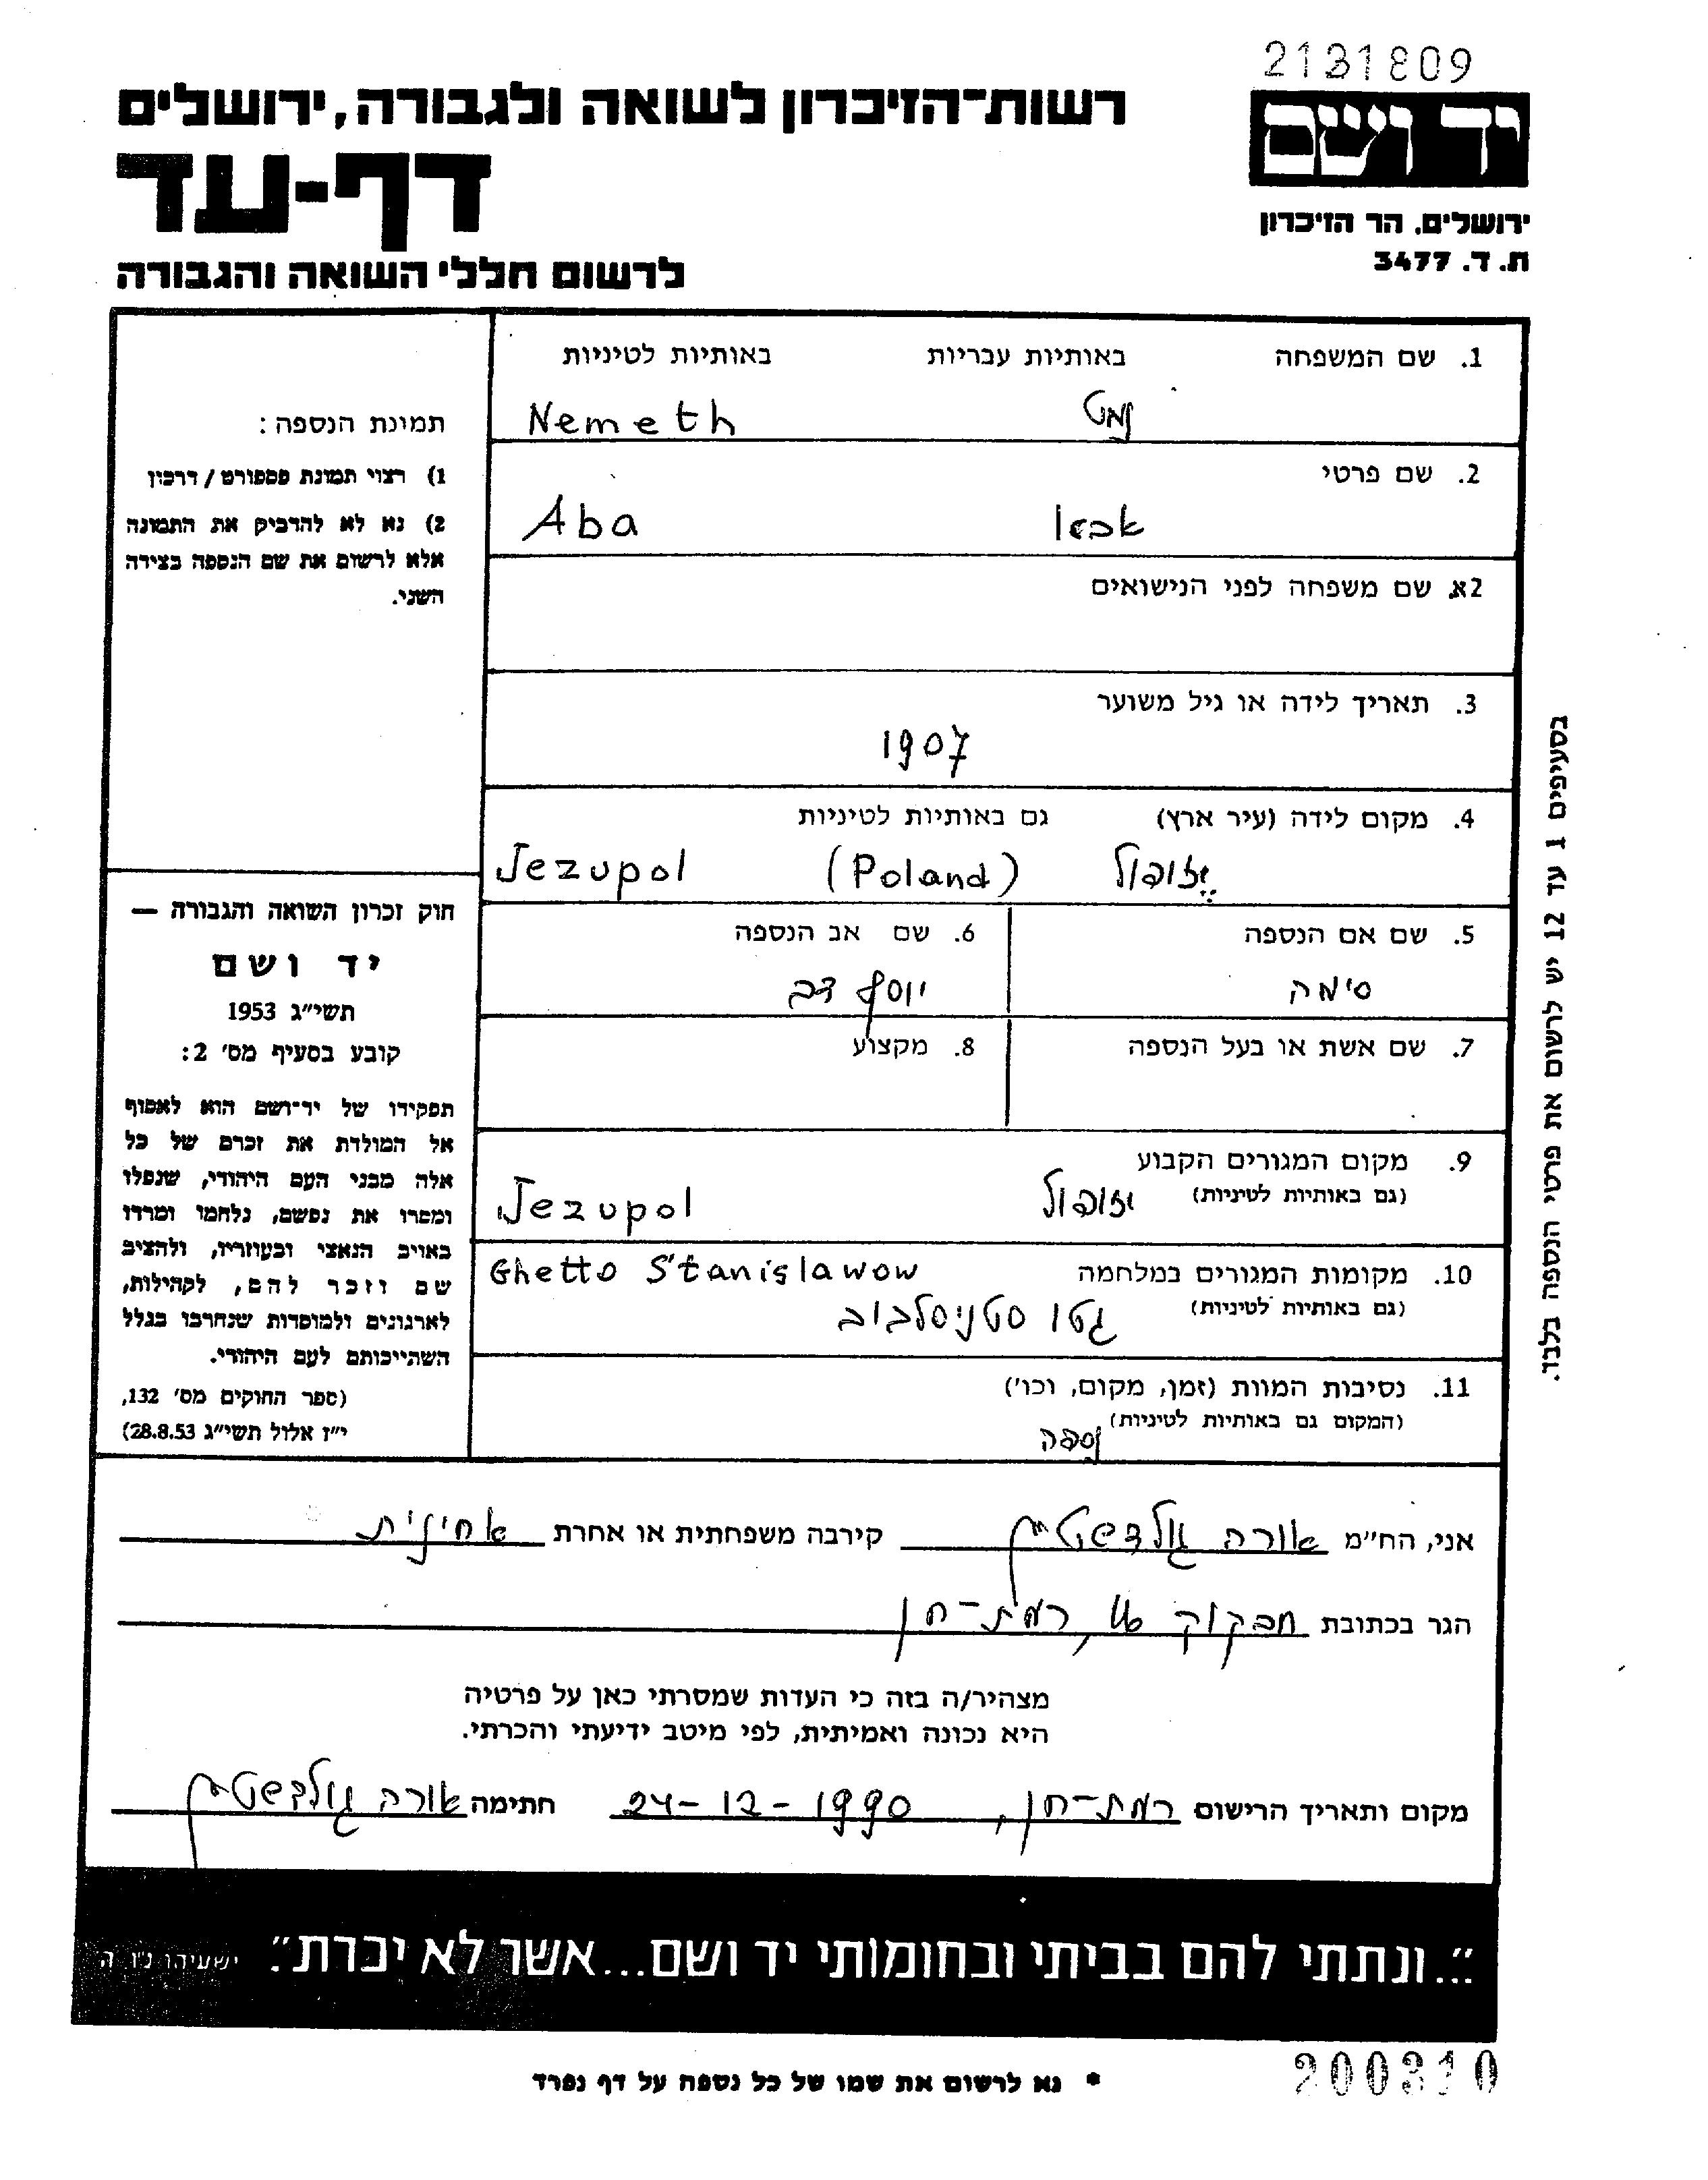 2131809
רשות־הזיכרון לשואה ולגבורה, ירושלים
יד ושם
דף-עד
ירושלים. הר הזיכרון
ת. ד. 3477
לרשום חללי השואה והגבורה
1. שם המשפחה באותיות עבריות באותיות לטיניות
נמט Nemeth
2. שם פרטי
אבא Aba
2א. שם משפחה לפני הנישואים
3. תאריך לידה או גיל משוער
1907
4. מקום לידה (עיר ארץ) גם באותיות לטיניות
יזופול (Poland) Jezupol
5. שם אם הנספה
סימה
6. שם אב הנספה
יוסף דב
7. שם אשת או בעל הנספה
8. מקצוע
9. מקום המגורים הקבוע
(גם באותיות לטיניות) יזופול Jezupol
10. מקומות המגורים במלחמה Ghetto Stanislawow
(גם באותיות לטיניות) גטו סטניסלבוב
11. נסיבות המוות (זמן, מקום, וכו')
(המקום גם באותיות לטיניות)
נספה
תמונת הנספה:
1) רצוי תמונת פספורט / דרכון
2) נא לא להדביק את התמונה
אלא לרשום את שם הנספה בצידה
השני.
חוק זכרון השואה והגבורה —
יד ושם
תשי״ג 1953
קובע בסעיף מס׳ 2:
תפקידו של יד־ושם הוא לאסוף
אל המולדת את זכרם של כל
אלה מבני העם היהודי, שנפלו
ומסרו את נפשם, נלחמו ומרדו
באויב הנאצי ובעוזריו, ולהציב
שם וזכר להם, לקהילות,
לארגונים ולמוסדות שנחרבו בגלל
השתייכותם לעם היהודי.
(ספר החוקים מס׳ 132,
י״ז אלול תשי״ג 28.8.53)
בסעיפים 1 עד 12 יש לרשום את פרטי הנספה בלבד.
אני, הח״מ אורה גולדשטיין קירבה משפחתית או אחרת אחינית
הגר בכתובת חבקוק, רמת-חן
מצהיר/ה בזה כי העדות שמסרתי כאן על פרטיה
היא נכונה ואמיתית, לפי מיטב ידיעתי והכרתי.
מקום ותאריך הרישום רמת-חן, 24-12-1990 חתימה אורה גולדשטיין
"...ונתתי להם בביתי ובחומותי יד ושם...אשר לא יכרת". ישעיהו נ״ו ה
* נא לרשום את שמו של כל נספה על דף נפרד
200310